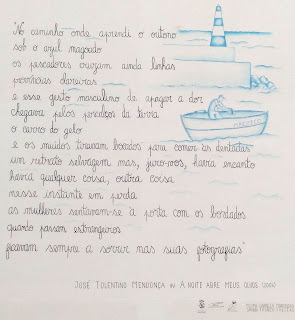 "No caminho onde aprendi o outono
sob o azul magoado
os pescadores cruzam ainda linhas
províncias clareiras
e esse gesto masculino de apagar a dor
chegava pelos baraços da terra
o carro do gelo
e os miúdos tiravam bocados para comer às dentadas
um retrato selvagem mas, juro-vos, havia encanto
havia qualquer coisa, outra coisa
nesse instante em perda
as mulheres sentavam-se à porta com os bordados
quando passam estrangeiros
ficavam sempre a sorrir nas suas fotografias"
MACHICO
JOSÉ TOLENTINO MENDONÇA IN A NOITE ABRE MEUS OLHOS (2006)